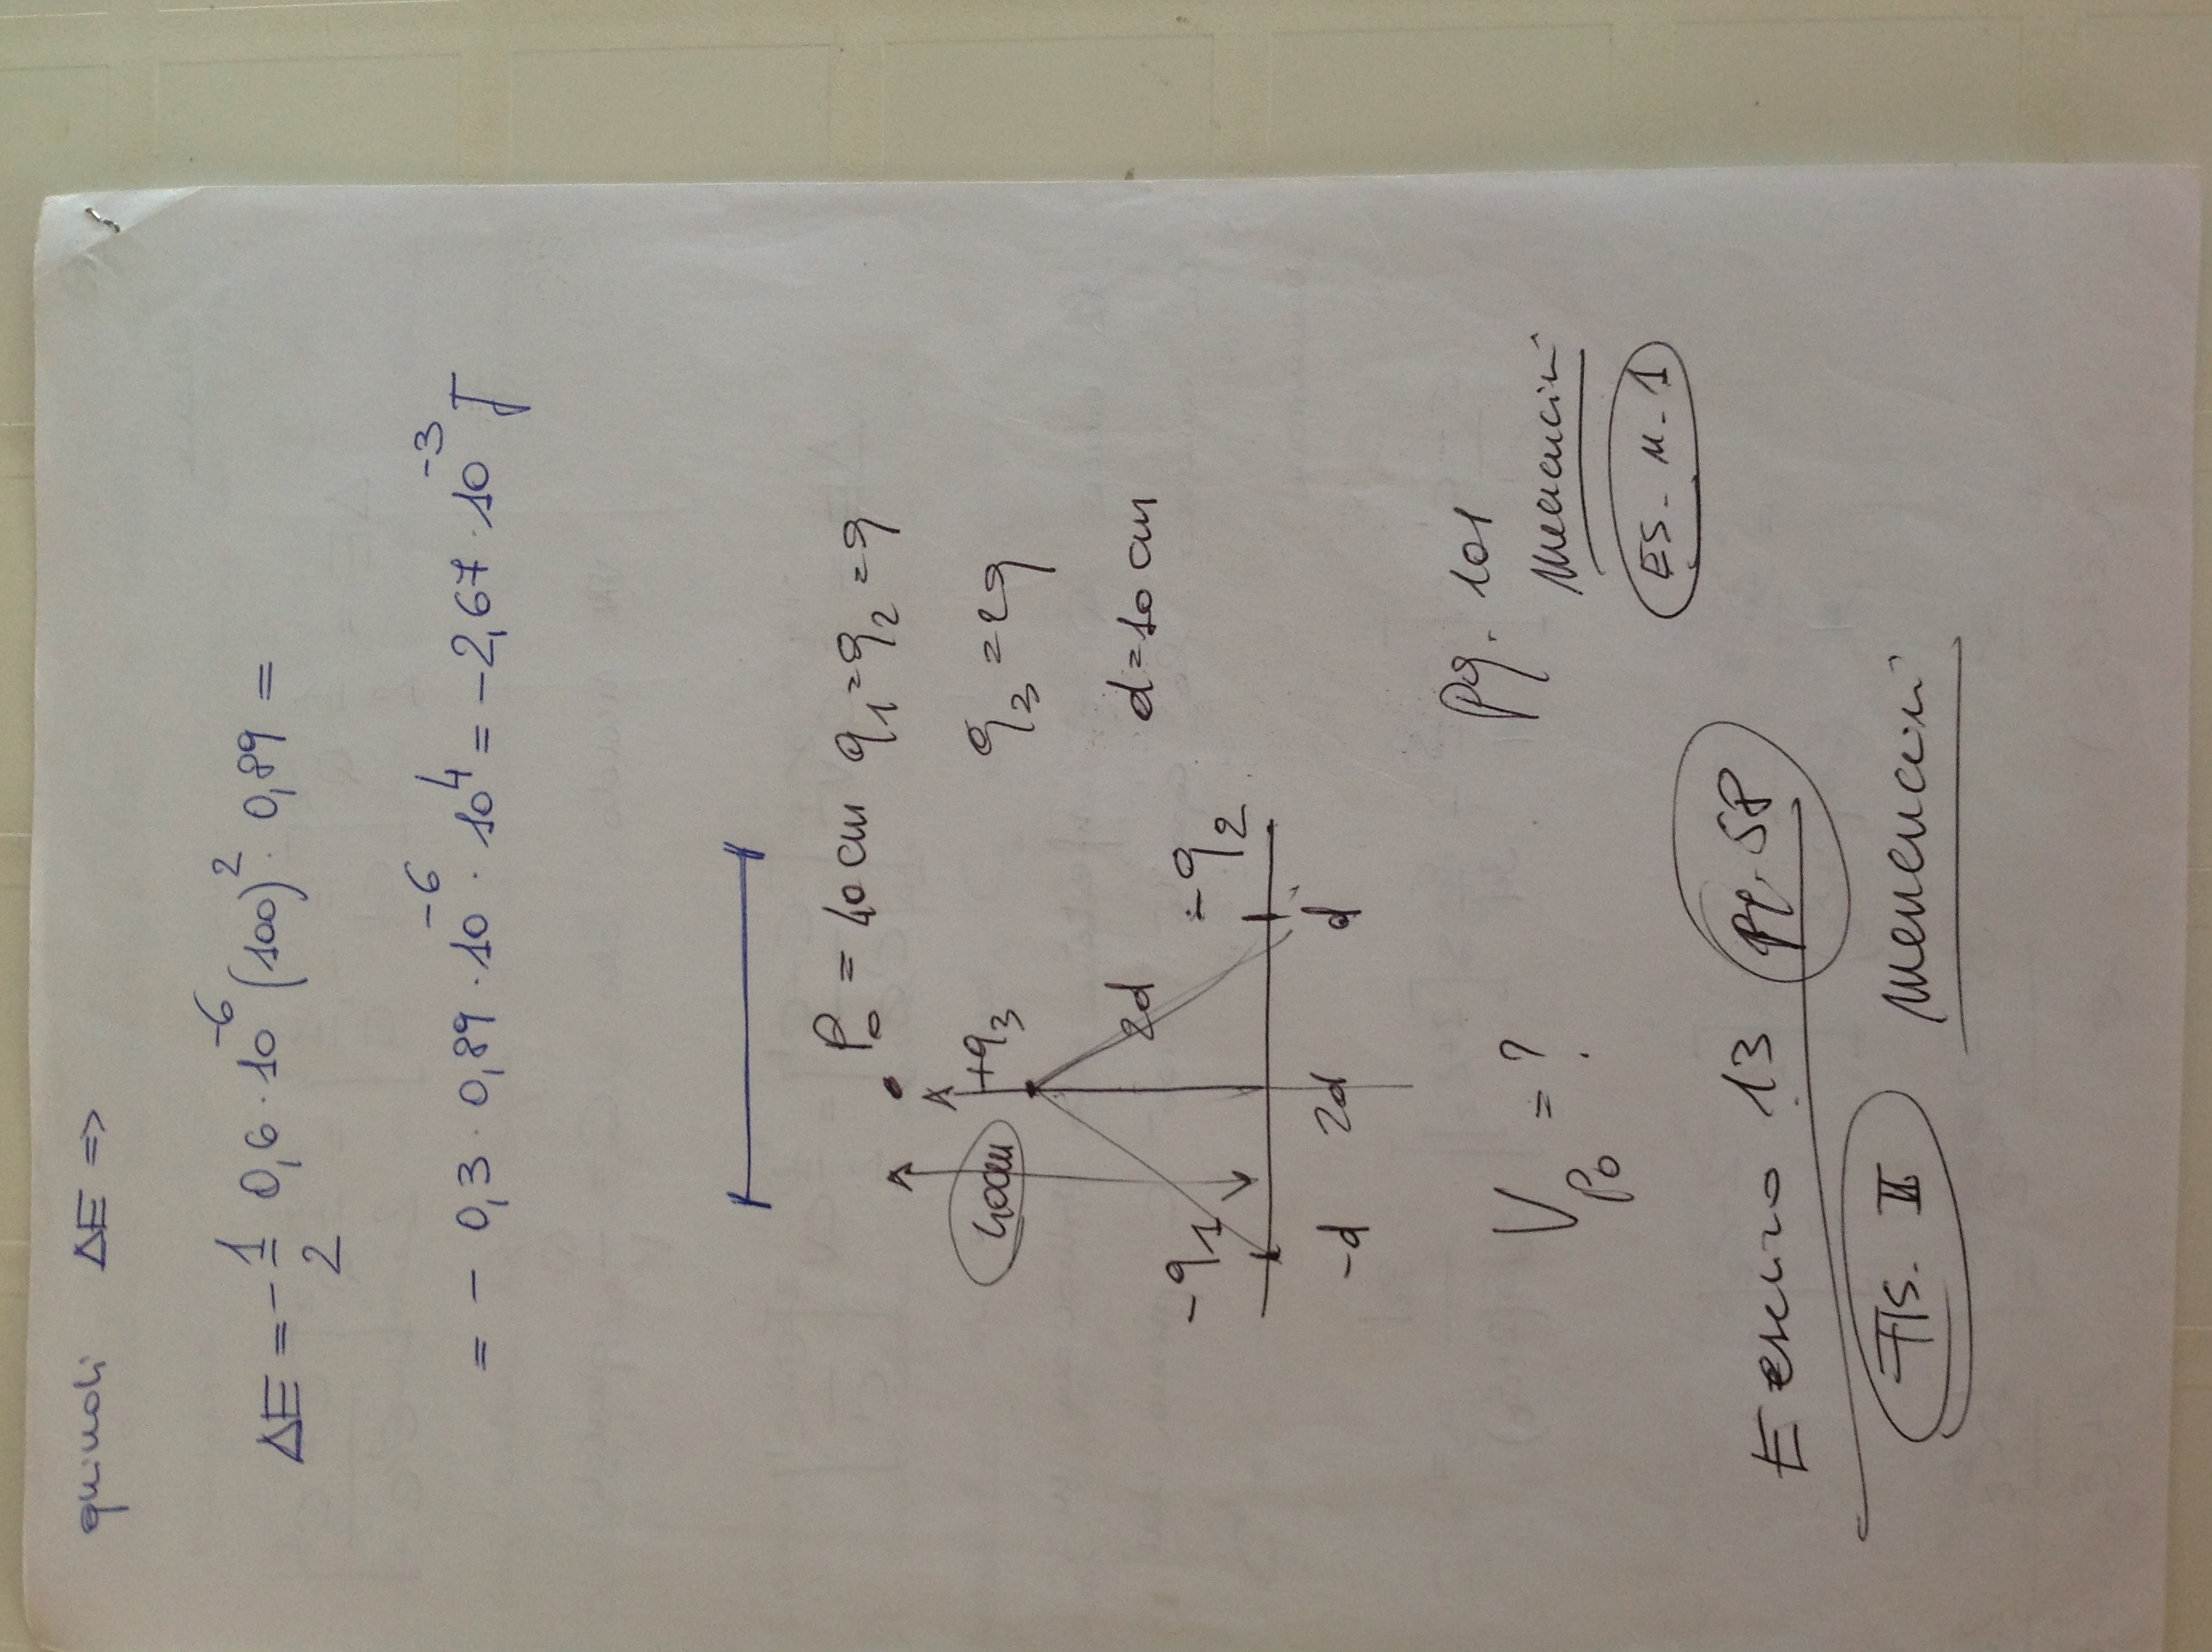 quindi ΔE =>
ΔE = - 1/2 0,6 · 10^-6 (100)^2 · 0,89 =
= - 0,3 · 0,89 · 10^-6 · 10^4 = -2,67 · 10^-3 J
P₀ = 40 cm q₁ = q₂ = q
40cm +q₃ q₃ = 2q
2d d = 10 cm
-q₁ -q₂
-d 2d d
V_P₀ = ? pg. 101
Mencuccini
ES. N. 1
Esercizo 13 pg. 58
FIS. II Mencuccini